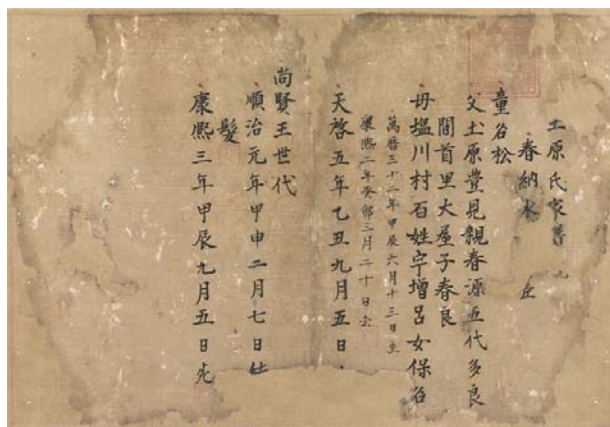 土原氏家譜
春納
童名松
父土原豊見親春源五代多良
間首里大屋子春良
母塩川村石姓宇増呂女保名
萬暦三十二年甲辰六月十三日生
康熙二年癸卯三月二十日
天啓五年乙丑九月五日
尚賢王世代
順治元年甲申二月七日
髮
康熙三年甲辰九月五日